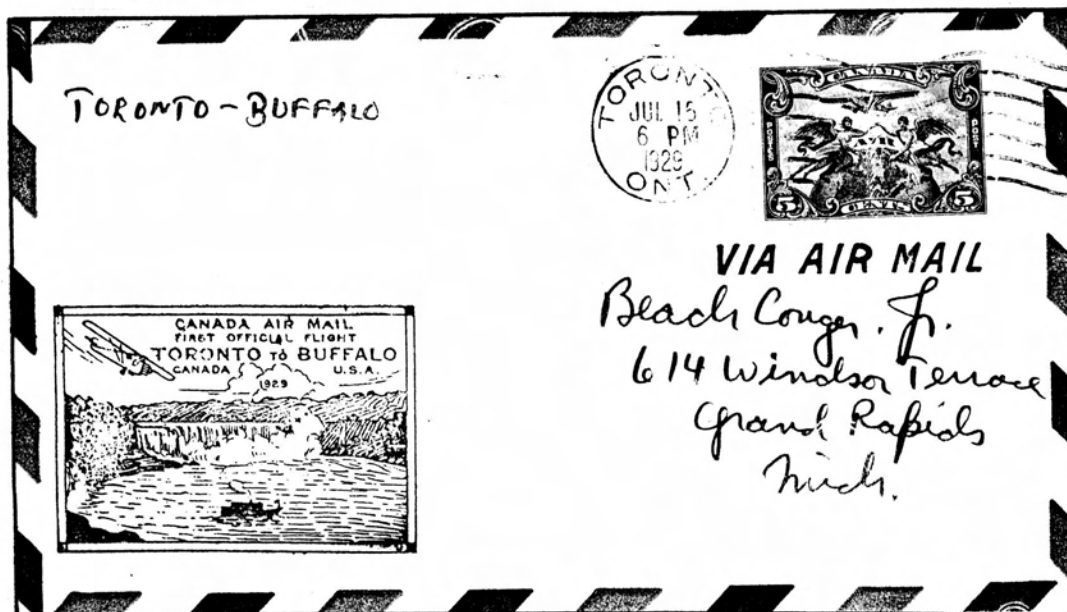 TORONTO - BUFFALO
TORONTO
JUL 15
6 PM
1929
ONT.
CANADA
POSTES
AIR
POST
5 CENTS 5
VIA AIR MAIL
Beach Conger, Jr.
614 Windsor Terrace
Grand Rapids
Mich.
CANADA AIR MAIL
FIRST OFFICIAL FLIGHT
TORONTO TO BUFFALO
CANADA U.S.A.
1929